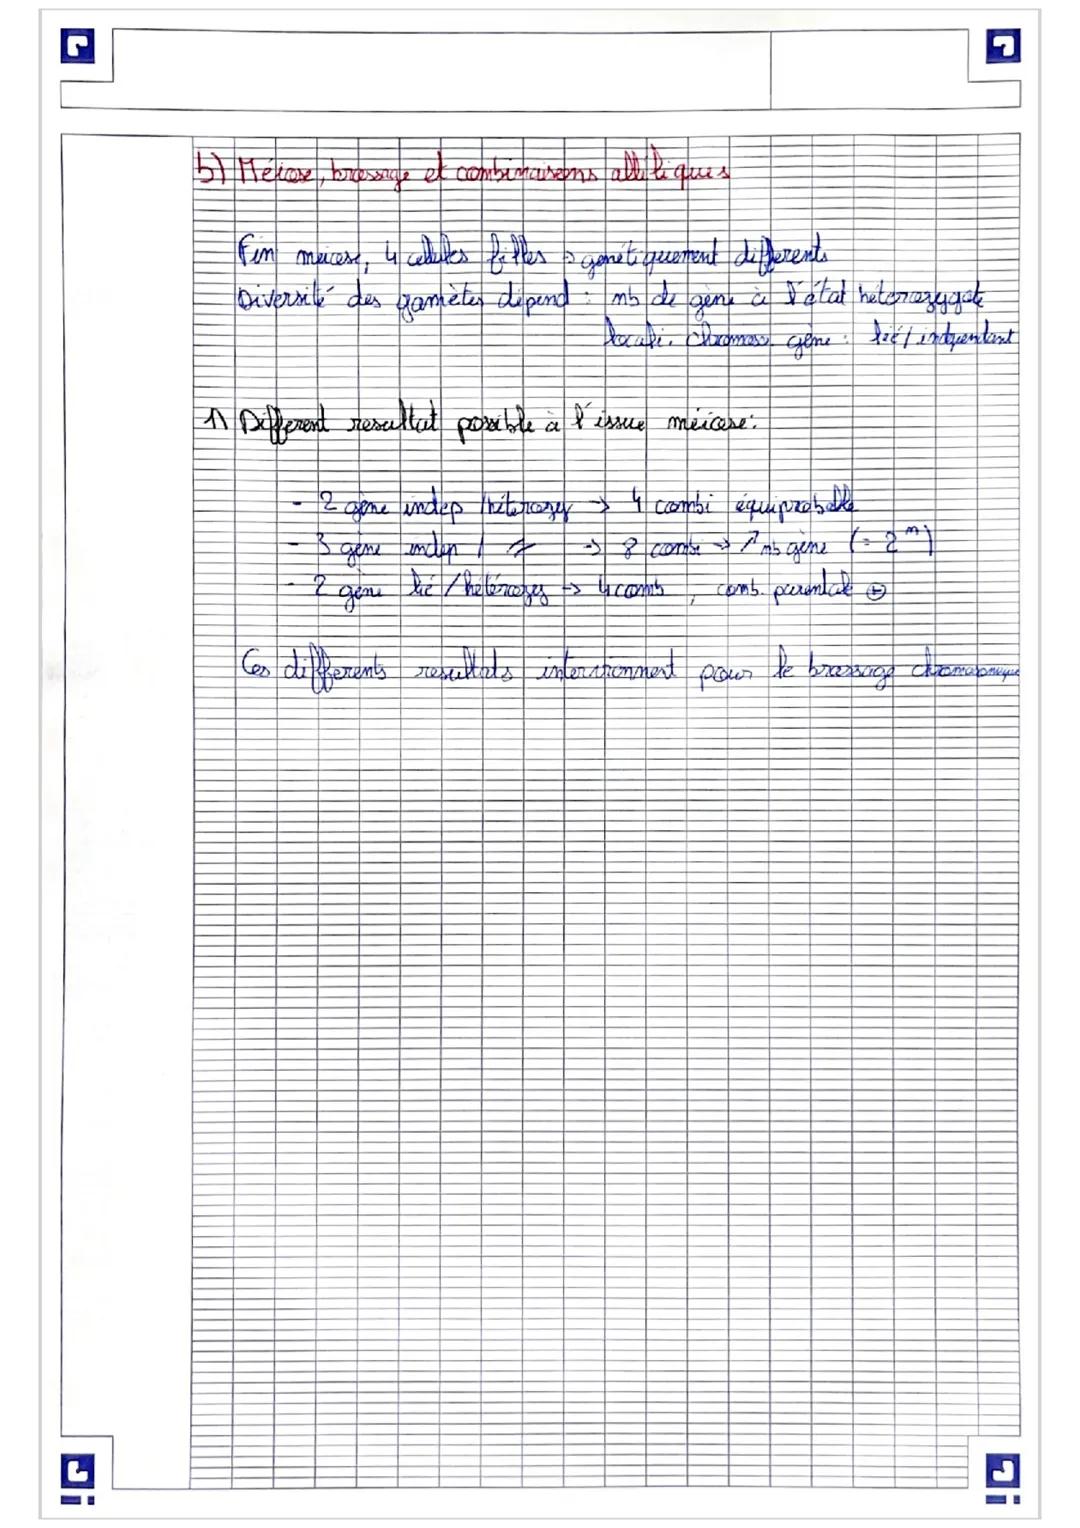 b) Méiose, brassage et combinaisons alléliques
Fin méiose, 4 cellules filles → génétiquement differents
Diversité des gamètes dépend : nb de gène à l'état hétérozygote
locali. chromoso. gène : lié / independant
1) Different resultat possible à l'issue méiose :
- 2 gène indep / héterozy → 4 combi équiprobable
- 3 gène indep / → 8 combi → ↗ nb gène (= 2ⁿ)
- 2 gène lié / hétérozy → 4 comb , comb. parentale ⊕
Ces differents resultats interviennent pour le brassage chromosomique